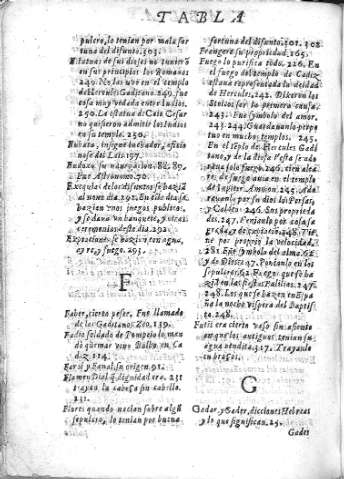 TABLA
pulcro, lo tenian por mala for
tuna del difunto. 303.
Estatuas de sus dioses no tuuierō
en sus principios los Romanos
249. No las uvo en el templo
de Hercules Gaditano. 249. fue
cosa muy vedada entre Iudios.
250. La estatua de Caio Cesar
no quisieron admitir los Iudios
en su templo. 250.
insigne
Eudoxo su nauegacion. 89.
Fue Astronomo. 70.
Exequias de los difuntos se haziā
al nono dia. 292. En este dia se
hazian unos juegos publicos,
y se daua un banquete, y otras
ceremonias deste dia. 292.
Expiaciones se hazian con agua,
ayre, y fuego. 293.
F
Faber, cierto pesce. Fue llamado
de los Gaditanos Zeo. 139.
Fadio soldado de Pompeio lo man
dò quemar vivo Balbo en Ca
diz. 114.
su origen. 91.
Flamen Dial, q̃ dignidad era. 231
trayan la cabeça sin cabello.
231.
Flores quando nacian sobre algũ
sepulcro, lo tenian por buena
fortuna del difunto. 301. 302.
su propriedad. 165.
Fuego lo purifica todo. 226. En
el fuego del templo de Cadiz
estaua representada la deidad
de Hercules. 242. Dixeron los
Stoicos ser la primera causa.
243. Fue symbolo del amor.
243. 244. Guardauanlo prope
tuo en muchos templos. 245.
En el tēplo de Hercules Gadi
tano, y de la Diosa Vesta se ado
raua solo fuego. 246.
de fuego auia en el templo
de Iupiter Ammon. 245. Ado
rauanlo por su dios los Persas,
y Caldeos. 246. Sus propieda
des. 247. Tenianlo por cosa sa
grada, y de 248. Tie
ne por proprio la velocidad.
281. Fue symbolo del alma. 62
y de Dios. 247. Ponianlo en los
sepulcros. 62. Fuegos que se ha
zian en las fiestas Palilias. 247.
248. Los que se hazen en Espa
ña la noche vispera del Baptis
ta. 248.
Futis era cierto vaso sin assiento
en que los antiguos tenian la
agua bendita. 317. Trayanle
en braços.
G
Gadar, y Gader, dicciones Hebreas
y lo que significan. 25.
Gades